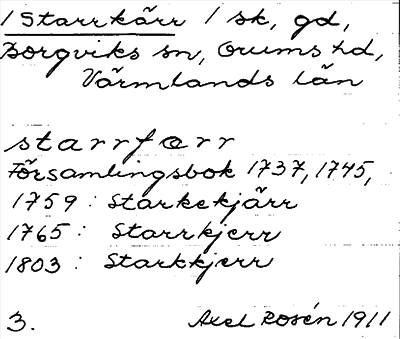 1 Starrkärr / sk, gd,
Borgviks sn, Grums hd,
Värmlands län
starrfærr
Församlingsbok 1737, 1745,
1759 : Starkekjärr
1765 : Starrkjerr
1803 : Starkkjerr
3. Axel Rosén 1911